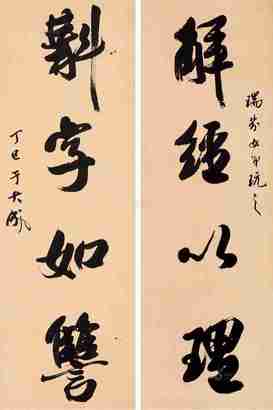 瑞芬女弟玩之
解經以理
斠字如讐
丁巳于大成